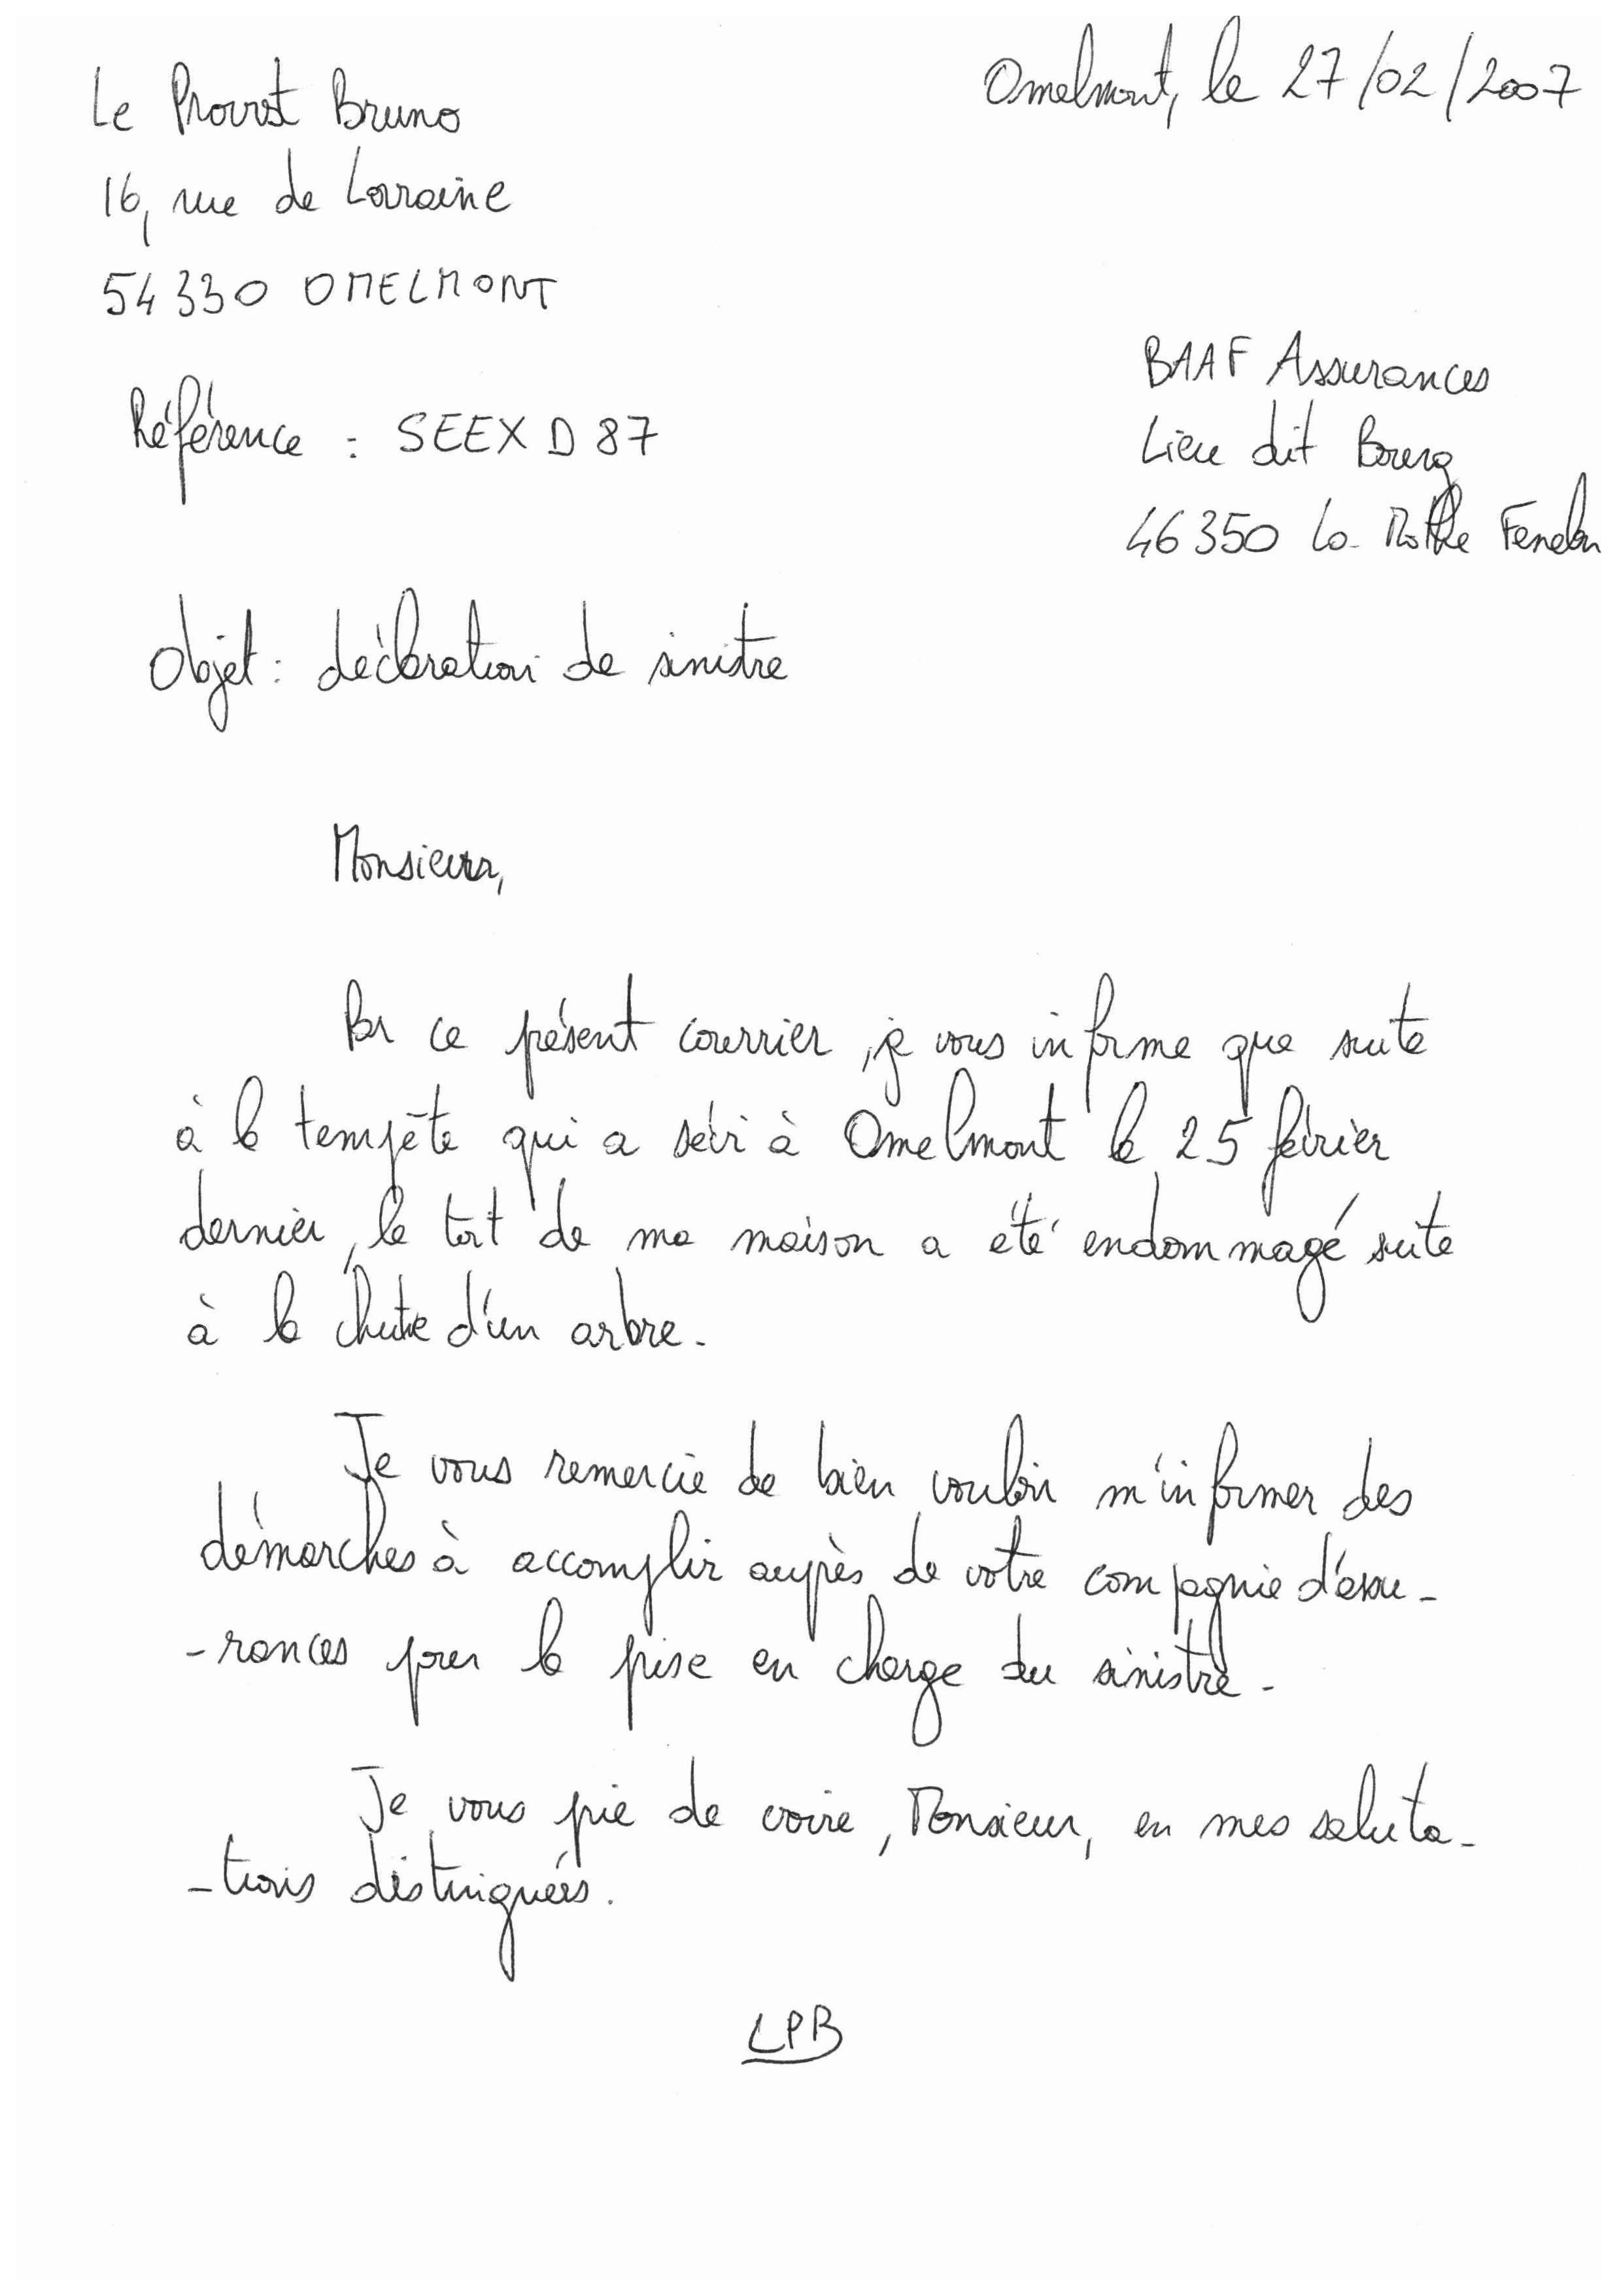 Le Provost Bruno
16, rue de Lorraine
54330 OMELMONT
Omelmont, le 27/02/2007
BAAF Assurances
Lieu dit Bourg
46350 La Mothe Fenelon
Référence : SEEXD87
Objet : déclaration de sinistre
Monsieur,
Par ce présent courrier, je vous informe que suite
à la tempête qui a sévi à Omelmont le 25 février
dernier, le toit de ma maison a été endommagé suite
à la chute d'un arbre.
Je vous remercie de bien vouloir m'informer des
démarches à accomplir auprès de votre compagnie d'assu-
-rances pour la prise en charge du sinistre.
Je vous prie de croire, Monsieur, en mes saluta-
-tions distinguées.
LPB